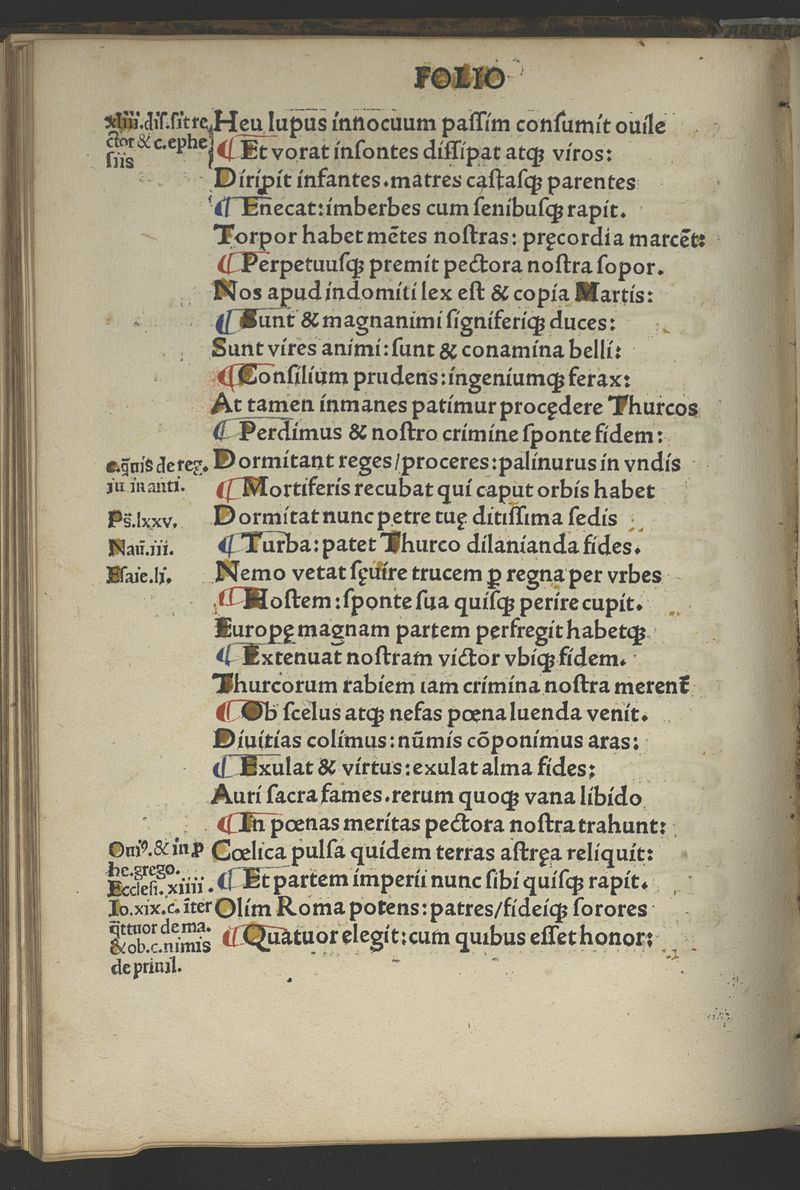 FOLIO
xliii.diſ.ſit re
ctor & c.ephe
ſiis
Heu lupus innocuum paſſim conſumit ouile
¶ Et vorat inſontes diſſipat atqꝫ viros:
Diripit infantes.matres caſtaſqꝫ parentes
¶ Enecat:imberbes cum ſenibuſqꝫ rapit.
Torpor habet mētes noſtras: pręcordia marcēt:
¶ Perpetuuſqꝫ premit pectora noſtra ſopor.
Nos apud indomiti lex eſt & copia Martis:
¶ Sunt & magnanimi ſigniferiqꝫ duces:
Sunt vires animi:ſunt & conamina belli:
¶ Conſilium prudens:ingeniumqꝫ ferax:
At tamen inmanes patimur procędere Thurcos
¶ Perdimus & noſtro crimine ſponte fidem:
c.q̄nis de reg.
iu in anti.
Dormitant reges/proceres:palinurus in vndis
¶ Mortiferis recubat qui caput orbis habet
Ps̄.lxxv.
Dormitat nunc petre tuę ditiſſima ſedis
Nau̅.iii.
¶ Turba:patet Thurco dilanianda fides.
Eſaie.li.
Nemo vetat ſęuire trucem ꝑ regna per vrbes
¶ Hoſtem:ſponte ſua quiſqꝫ perire cupit.
Europę magnam partem perfregit habetqꝫ
¶ Extenuat noſtram victor vbiqꝫ fidem.
Thurcorum rabiem iam crimina noſtra merent᷑
¶ Ob ſcelus atqꝫ nefas pœna luenda venit.
Diuitias colimus:nūmis cōponimus aras:
¶ Exulat & virtus:exulat alma fides;
Auri ſacra fames.rerum quoqꝫ vana libido
¶ In pœnas meritas pectora noſtra trahunt:
Omīꝰ.& in ꝑ
he.grego.
Eccleſi.xiiii.
Cœlica pulſa quidem terras aſtręa reliquit:
¶ Et partem imperii nunc ſibi quiſqꝫ rapit.
Io.xix.c.īter
q̄ttuor de ma.
& ob.c.nimis
de priuil.
Olim Roma potens:patres/fideiqꝫ ſorores
¶ Quatuor elegit:cum quibus eſſet honor: